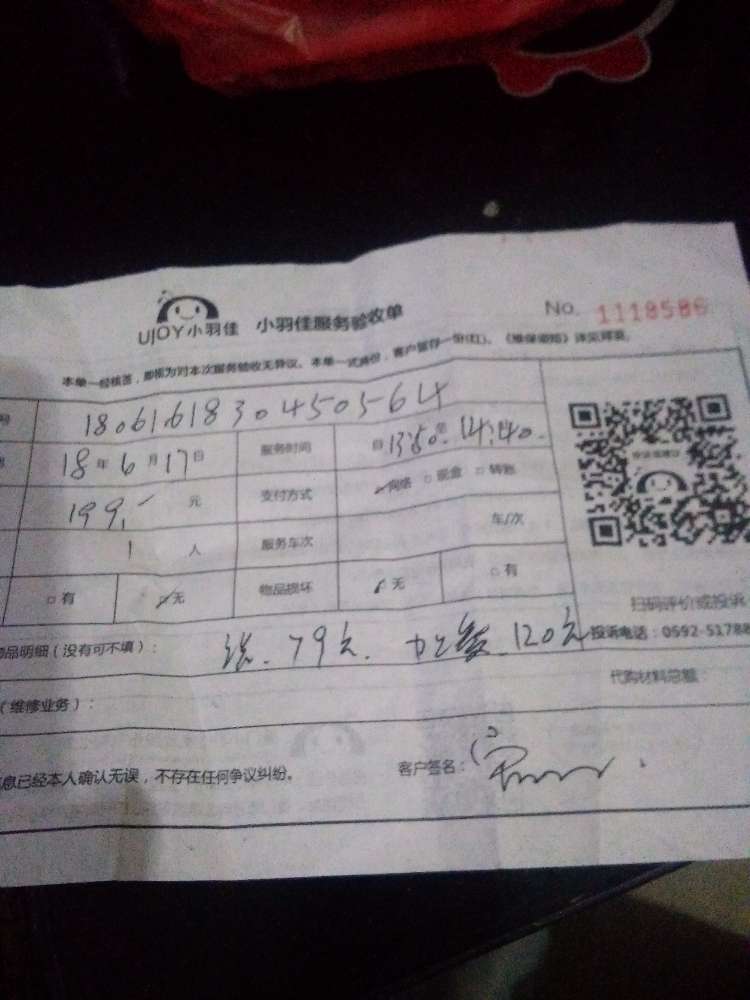 UJOY小羽佳 小羽佳服务验收单 No. 1118586
本单一经核签，即视为对本次服务验收无异议。本单一式两份，客户留存一份(红)。《维保须知》详见背面。
18061618304505564
18年6月17日 服务时间 自13:50至14:40.
199.- 元 支付方式 网络 □现金 □转账
1 人 服务车次 车/次
□有 无 物品损坏 无 □有
扫码评价或投诉
品明细（没有可不填）： 洗 79元. 加氟 120元 投诉电话：0592-51788
（维修业务）： 代购材料总额
息已经本人确认无误，不存在任何争议纠纷。 客户签名：